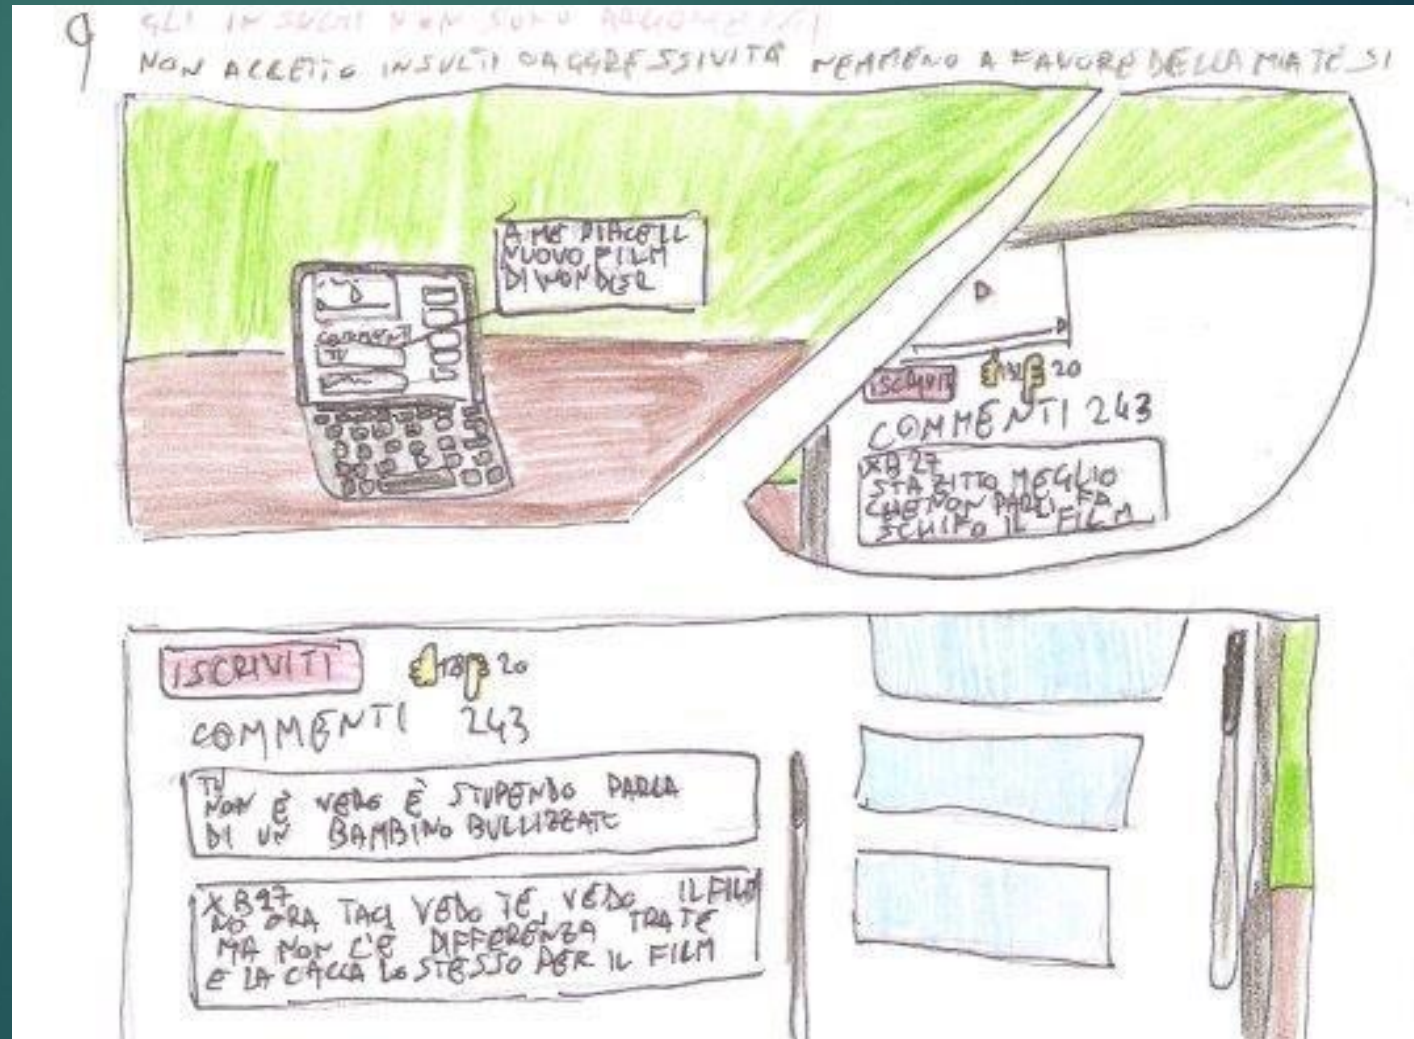 9
GLI INSULTI NON SONO ARGOMENTI
NON ACCETTO INSULTI O AGGRESSIVITÀ NEMMENO A FAVORE DELLA MIA TESI
A ME PIACE IL
NUOVO FILM
DI WONDER
COMMENTI
TU
ISCRIVITI 20
COMMENTI 243
XB27
STA ZITTO MEGLIO
CHE NON PARLI FA
SCHIFO IL FILM
ISCRIVITI 20
COMMENTI 243
TU
NON È VERO È STUPENDO PARLA
DI UN BAMBINO BULLIZZATO
XB27
NO ORA TACI VEDO TE, VEDO IL FILM
MA NON C'È DIFFERENZA TRA TE
E LA CACCA LO STESSO PER IL FILM